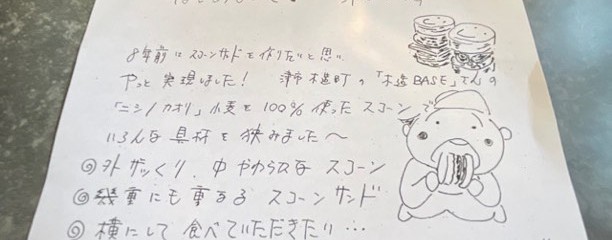 8年前にスコーンサンドを作りたいと思い
やっと実現しました! 津市木造町の「木造BASE」さんの
「ニシノカオリ」小麦を100%使ったスコーンで
いろんな具材を挟みました〜
◎外ザックリ、中やわらかな スコーン
◎幾重にも重なる スコーンサンド
◎横にして 食べていただきたい…